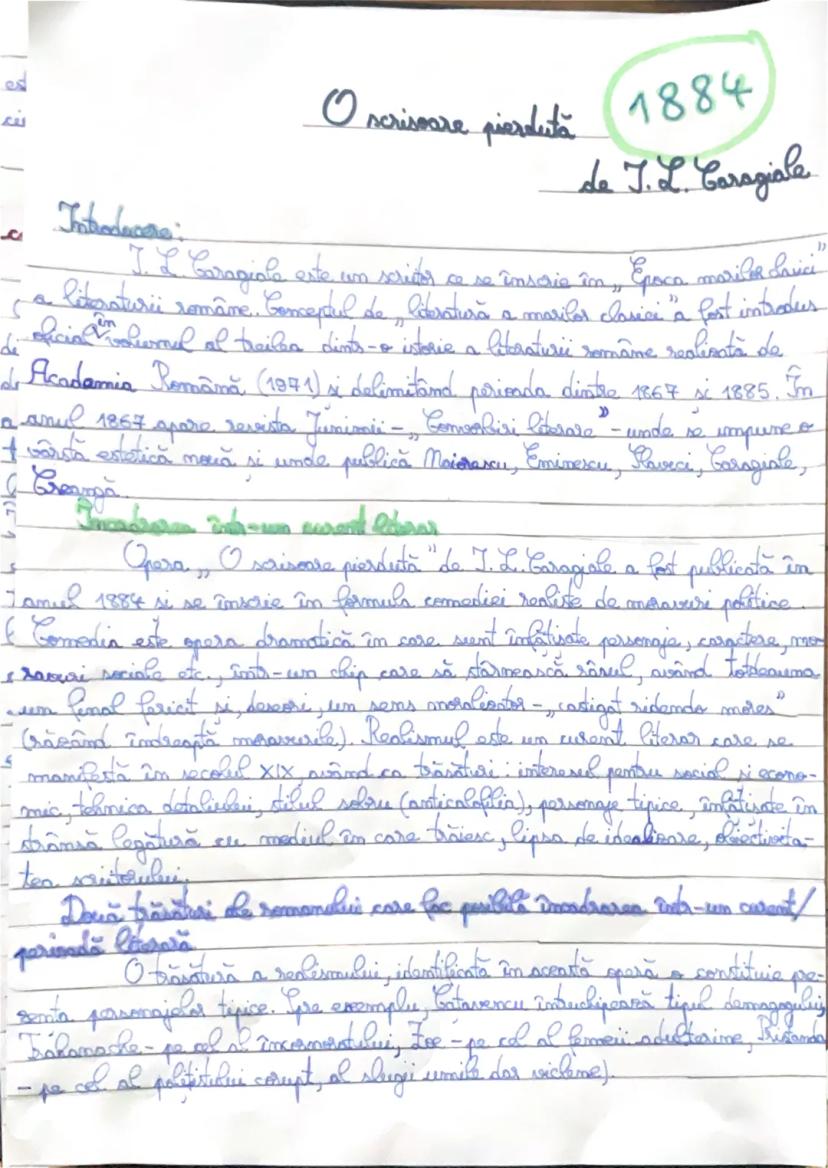 O scrisoare pierdută
1884
de I. L. Caragiale
Introducere:
I. L. Caragiale este un scriitor ce se înscrie în „Epoca marilor clasici”
a literaturii române. Conceptul de „literatură a marilor clasici” a fost introdus
oficial în volumul al treilea dintr-o istorie a literaturii române realizată de
Academia Română (1971) și delimitând perioada dintre 1867 și 1885. În
anul 1867 apare revista Junimii - „Convorbiri literare” - unde se impune o
vârstă estetică nouă și unde publică Maiorescu, Eminescu, Slavici, Caragiale,
Creangă.
Încadrarea într-un curent literar
Opera „O scrisoare pierdută” de I. L. Caragiale a fost publicată în
anul 1884 și se înscrie în formula comediei realiste de moravuri politice.
Comedia este opera dramatică în care sunt înfățișate personaje, caractere, mo-
ravuri sociale etc., într-un chip care să stârnească râsul, având totdeauna
un final fericit și, deseori, un sens moralizator - „castigat ridendo mores”
(râzând îndreaptă moravurile). Realismul este un curent literar care se
manifestă în secolul XIX, având ca trăsături: interesul pentru social și econo-
mic, tehnica detaliului, stilul sobru (anticalofilia), personaje tipice, înfățișate în
strânsă legătură cu mediul în care trăiesc, lipsa de idealizare, obiectivita-
tea scriitorului.
Două trăsături ale romanului care fac posibilă încadrarea într-un curent/
perioadă literară
O trăsătură a realismului, identificată în această operă o constituie pre-
zența personajelor tipice. Spre exemplu, Cațavencu întruchipează tipul demagogului,
Trahanache - pe cel al încornoratului, Zoe - pe cel al femeii adulterine, Pristanda
- pe cel al polițistului corupt, al slugii umile dar viclene).